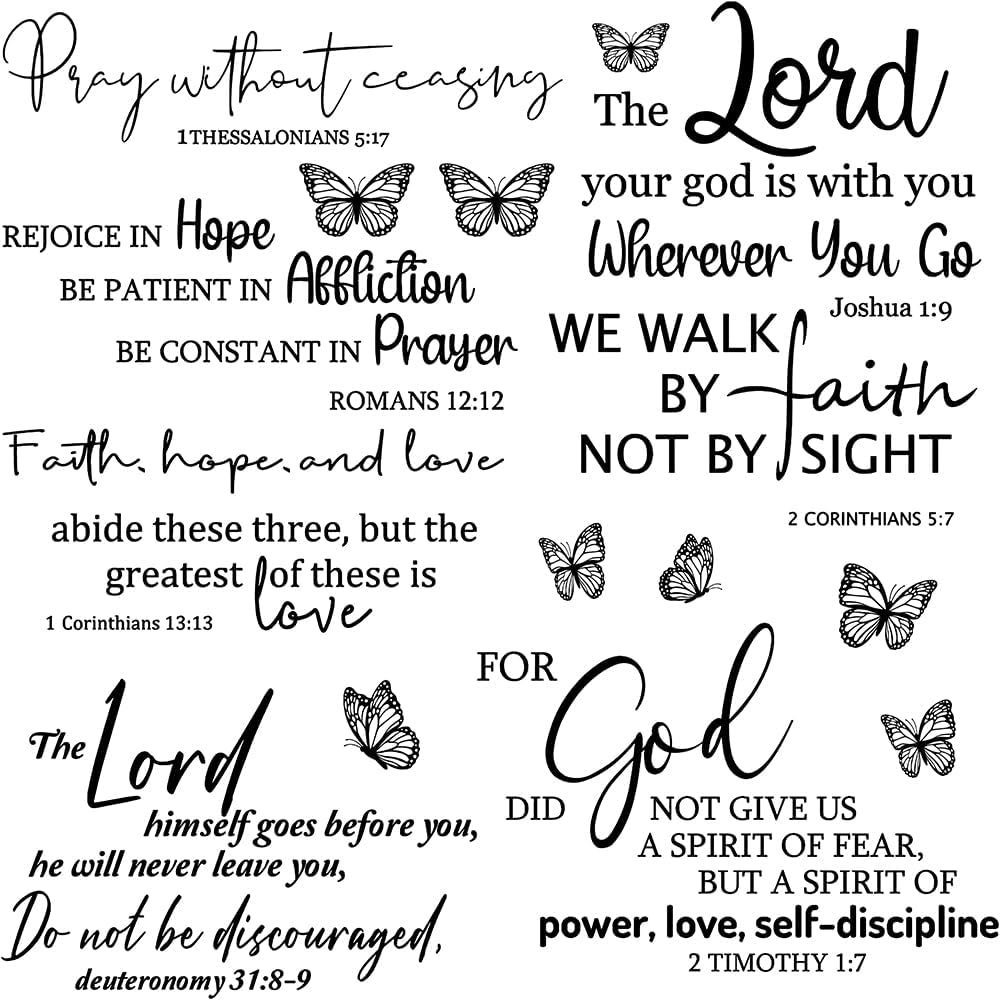 Pray without ceasing
1 THESSALONIANS 5:17
REJOICE IN Hope
BE PATIENT IN Affliction
BE CONSTANT IN Prayer
ROMANS 12:12
Faith. hope. and love
abide these three, but the
greatest of these is
love
1 Corinthians 13:13
The Lord
himself goes before you,
he will never leave you,
Do not be discouraged,
deuteronomy 31:8-9
The Lord
your god is with you
Wherever You Go
Joshua 1:9
WE WALK
BY faith
NOT BY SIGHT
2 CORINTHIANS 5:7
FOR
God
DID NOT GIVE US
A SPIRIT OF FEAR,
BUT A SPIRIT OF
power, love, self-discipline
2 TIMOTHY 1:7